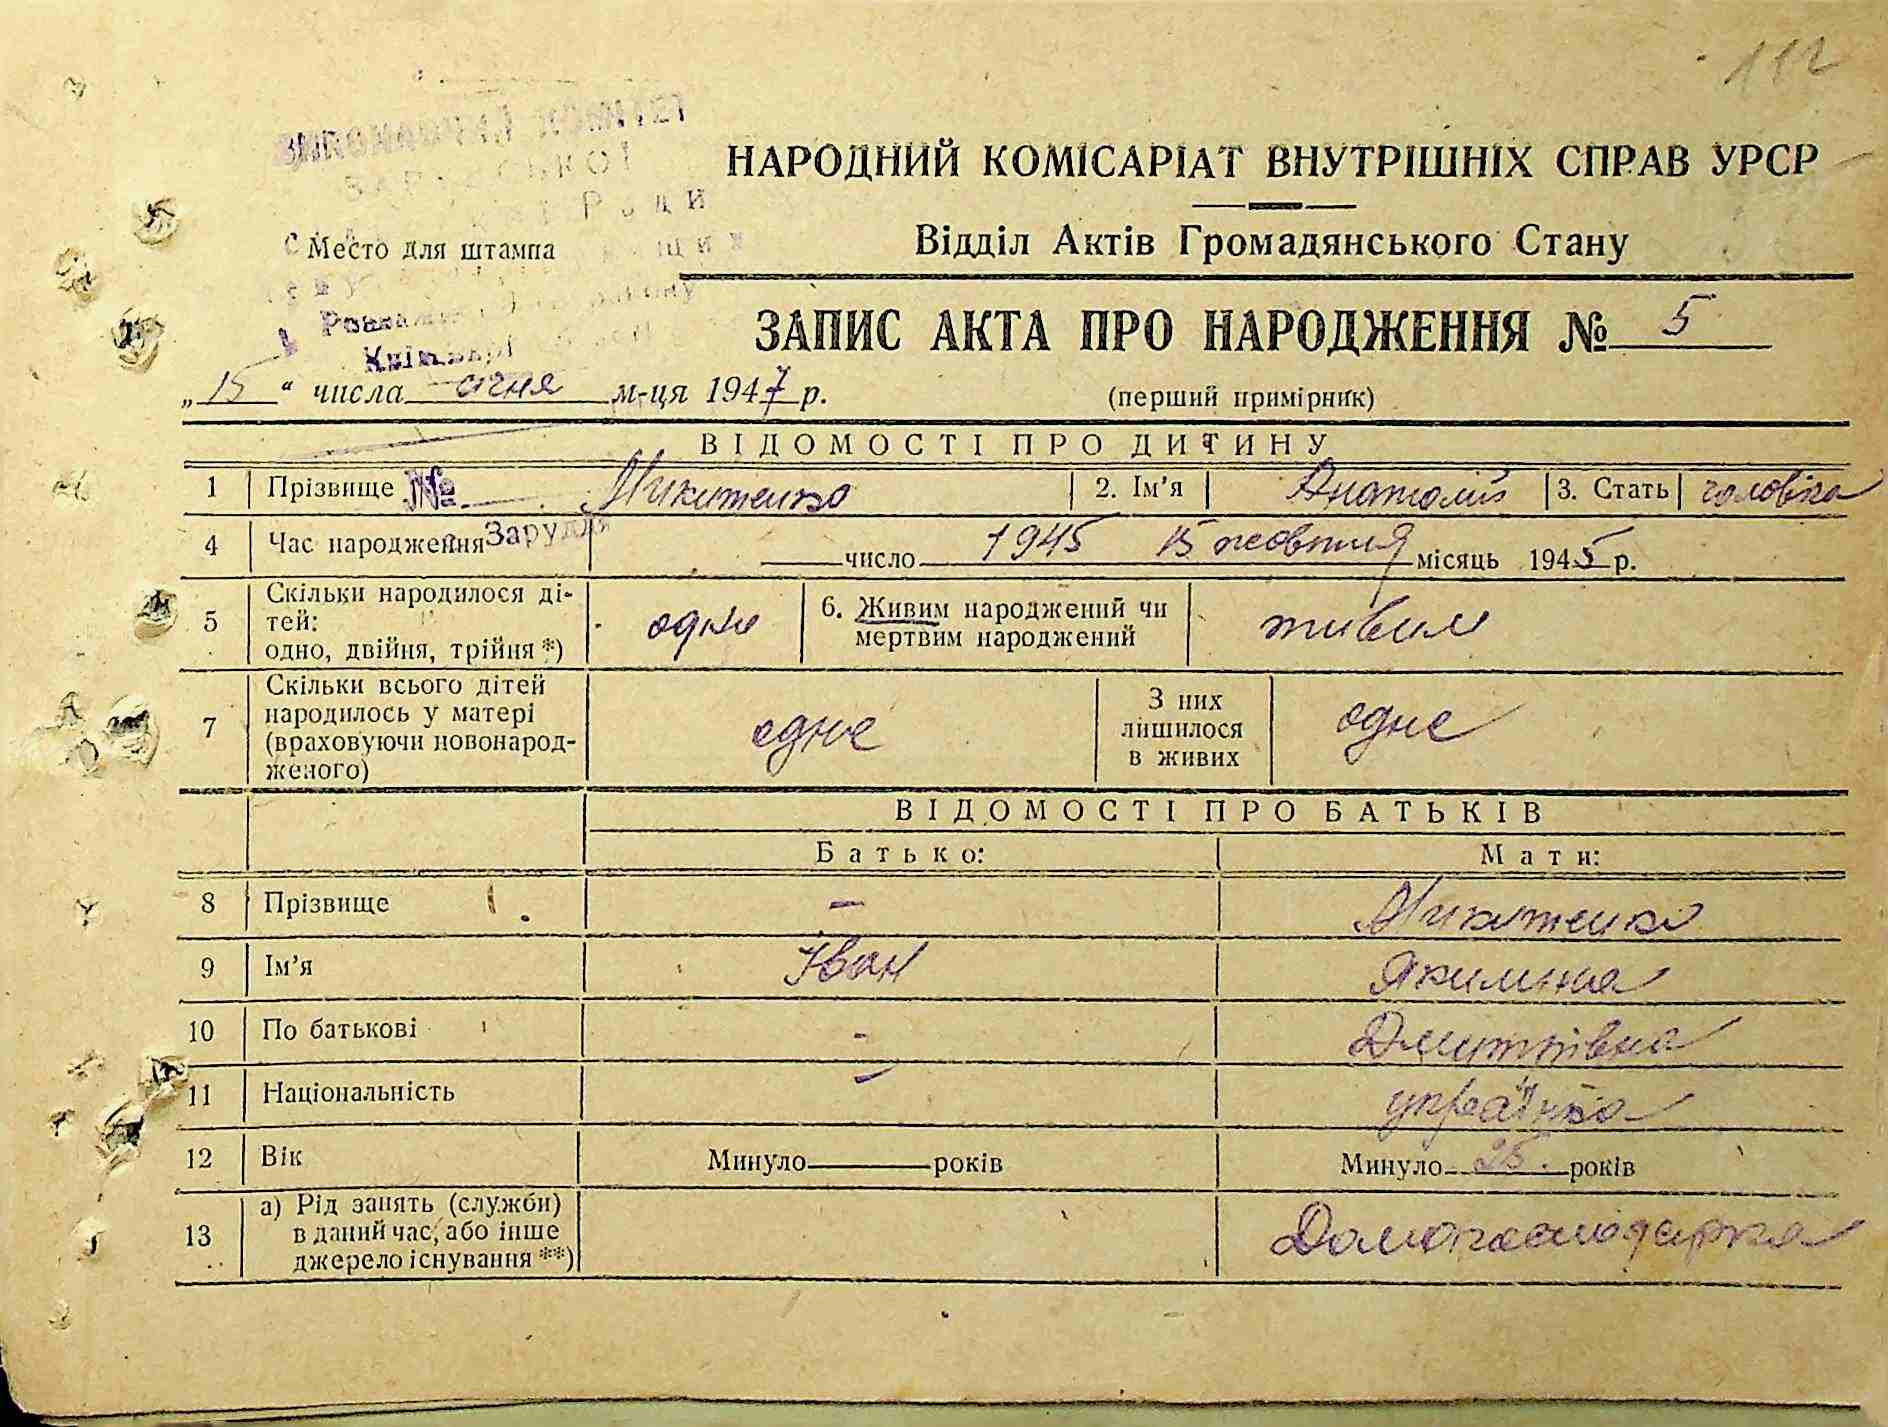 112
НАРОДНИЙ КОМІСАРІАТ ВНУТРІШНІХ СПРАВ УРСР
Место для штампа
Відділ Актів Громадянського Стану
ЗАПИС АКТА ПРО НАРОДЖЕННЯ № 5
„15“ числа січня м-ця 1947 р.
(перший примірник)
ВІДОМОСТІ ПРО ДИТИНУ
1 Прізвище № Микитенко 2. Ім'я Анатолій 3. Стать чоловіка
4 Час народження Заруддя число 1945 15 жовтня місяць 1945 р.
5 Скільки народилося ді-
тей:
одно, двійня, трійня *) одне 6. Живим народжений чи
мертвим народжений живим
7 Скільки всього дітей
народилось у матері
(враховуючи новонарод-
женого) одне З них
лишилося
в живих одне
ВІДОМОСТІ ПРО БАТЬКІВ
Батько: Мати:
8 Прізвище — Микитенко
9 Ім'я Іван Якилина
10 По батькові - Дмитрівна
11 Національність — українка
12 Вік Минуло років Минуло 25. років
13 а) Рід занять (служби)
в даний час, або інше
джерело існування **) Домогосподарка